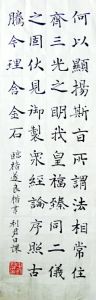 何以顯揚斯旨所謂法相常住
齊三光之明我皇福臻同二儀
之固伏見御製眾經論序照古
騰今理含金石
臨褚遂良楷書 利君日課